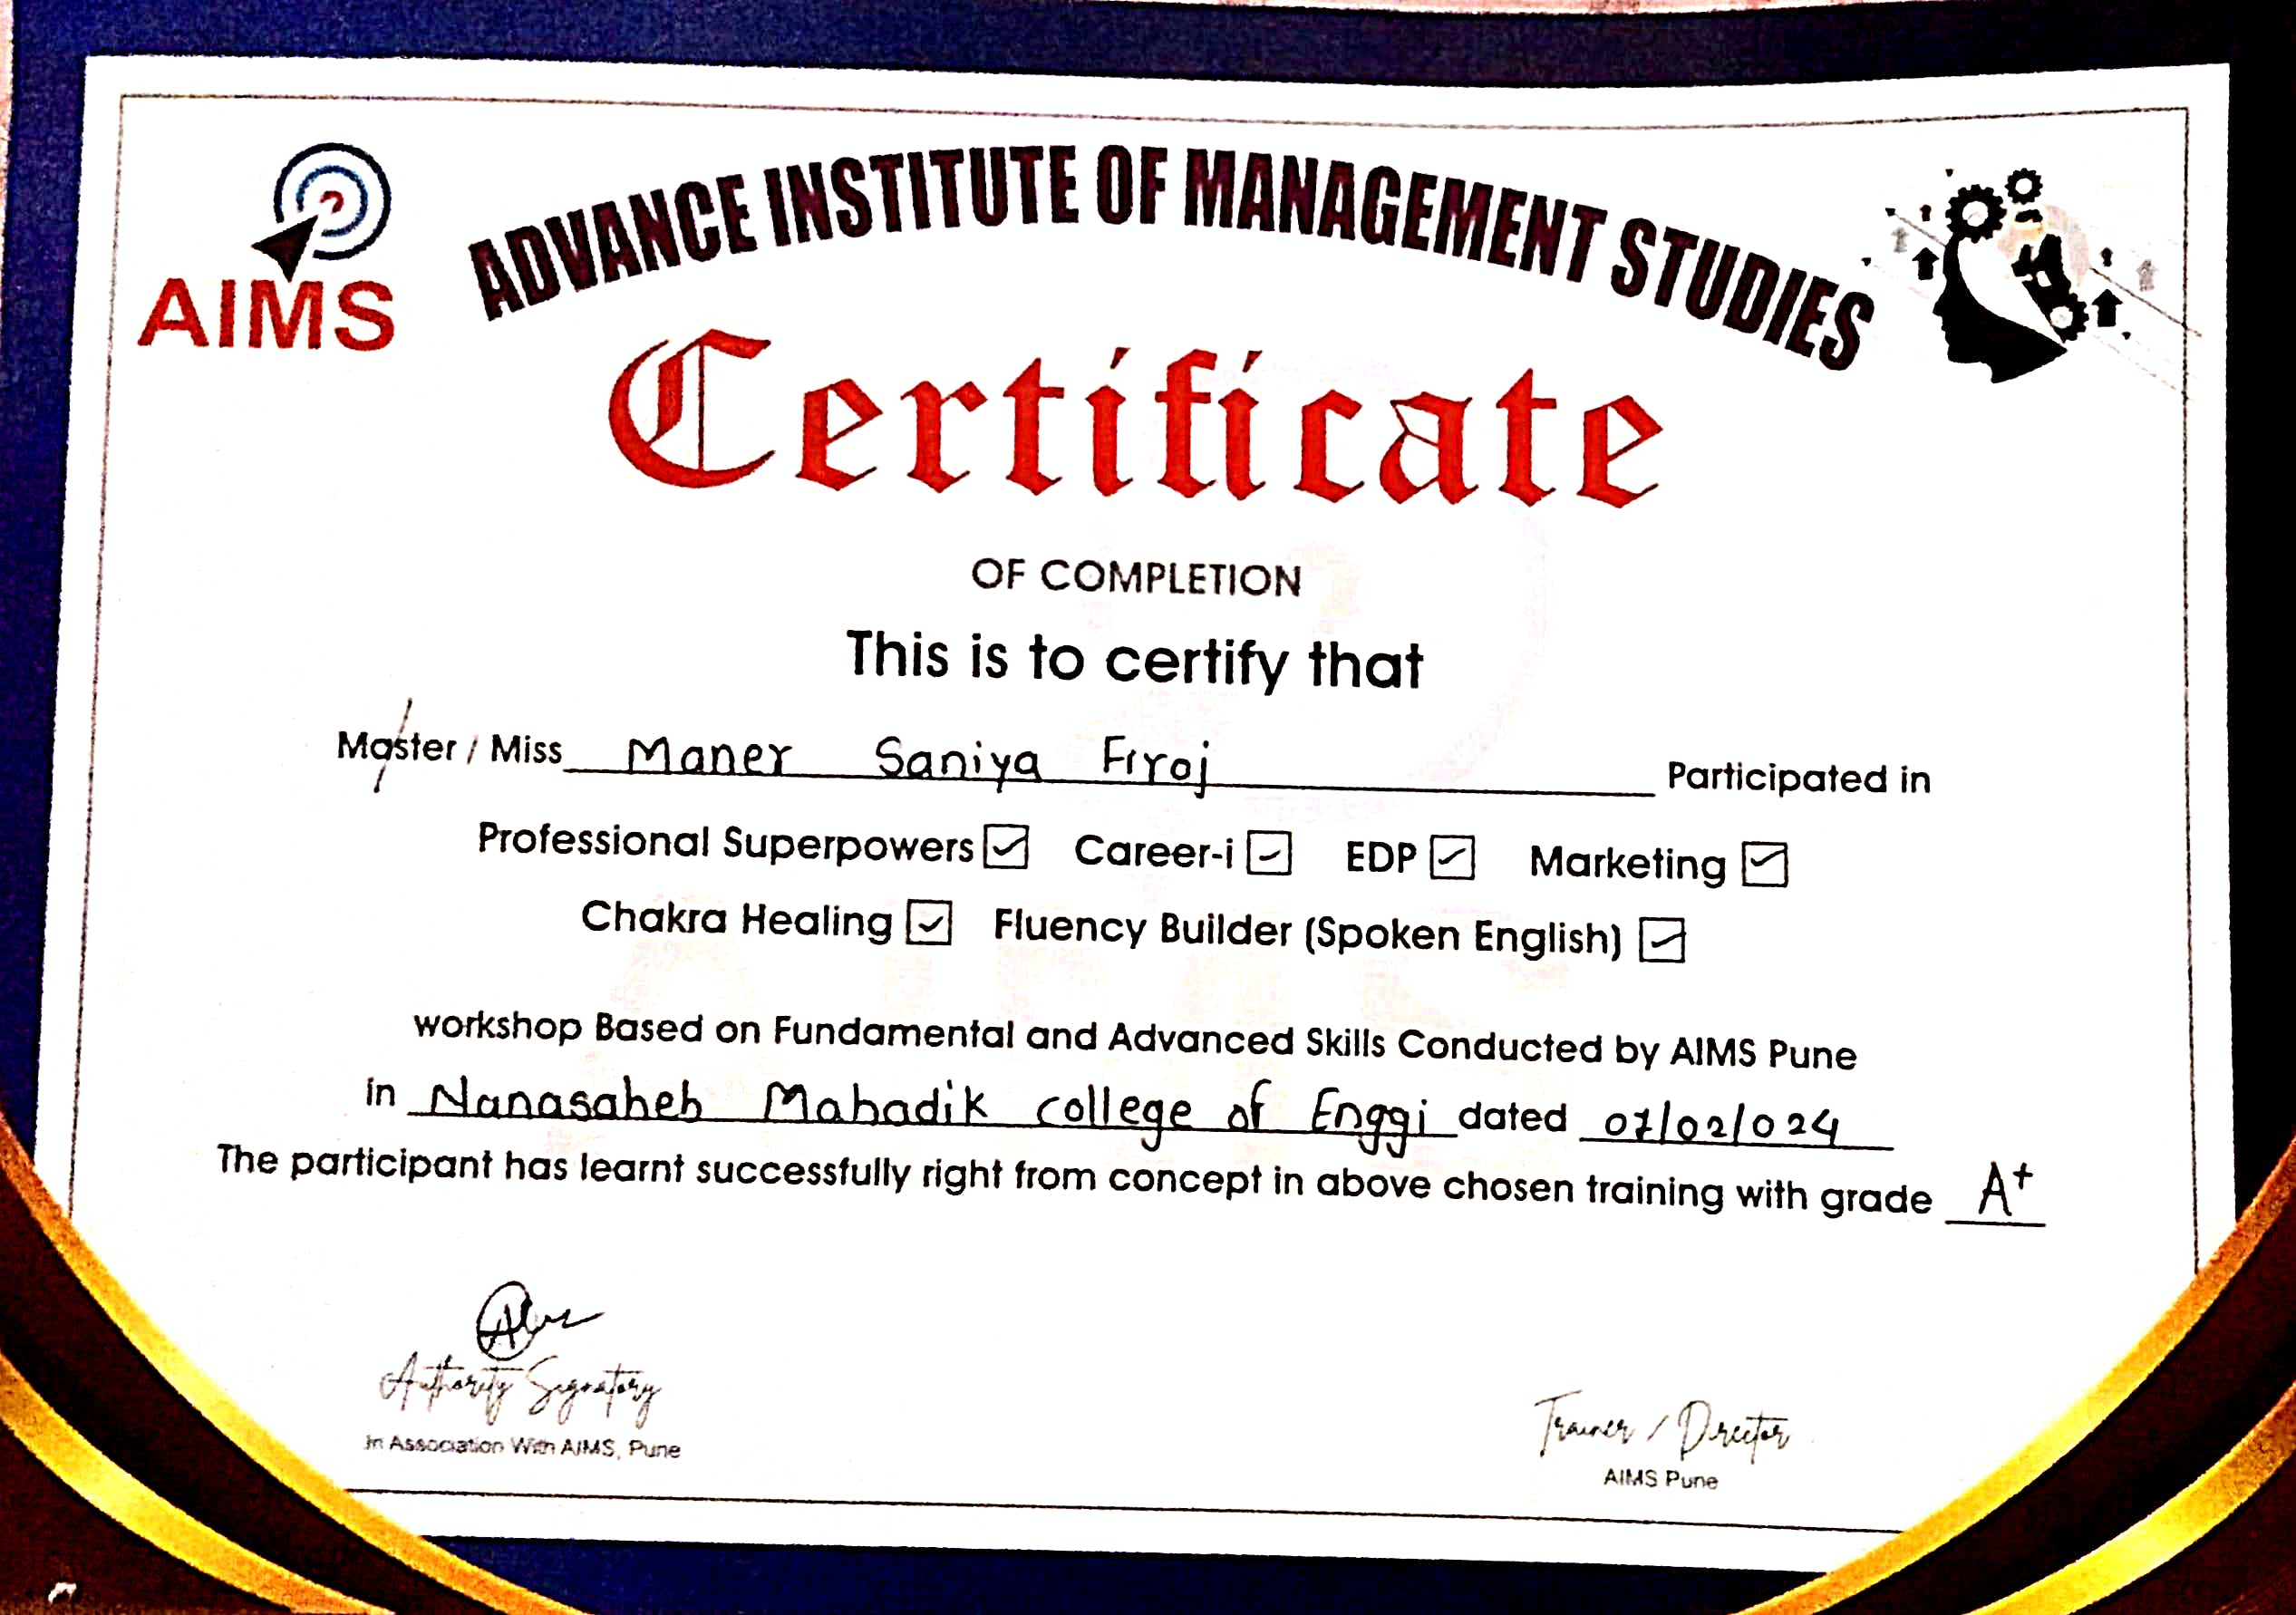 AIMS
ADVANCE INSTITUTE OF MANAGEMENT STUDIES
Certificate
OF COMPLETION
This is to certify that
Master / Miss Maner Saniya Firoj Participated in
Professional Superpowers ☑ Career-i ☑ EDP ☑ Marketing ☑
Chakra Healing ☑ Fluency Builder (Spoken English) ☑
workshop Based on Fundamental and Advanced Skills Conducted by AIMS Pune
in Nanasaheb Mahadik college of Enggi dated 07/02/024
The participant has learnt successfully right from concept in above chosen training with grade A+
Authority Signatory
In Association With AIMS, Pune
Trainer / Director
AIMS Pune